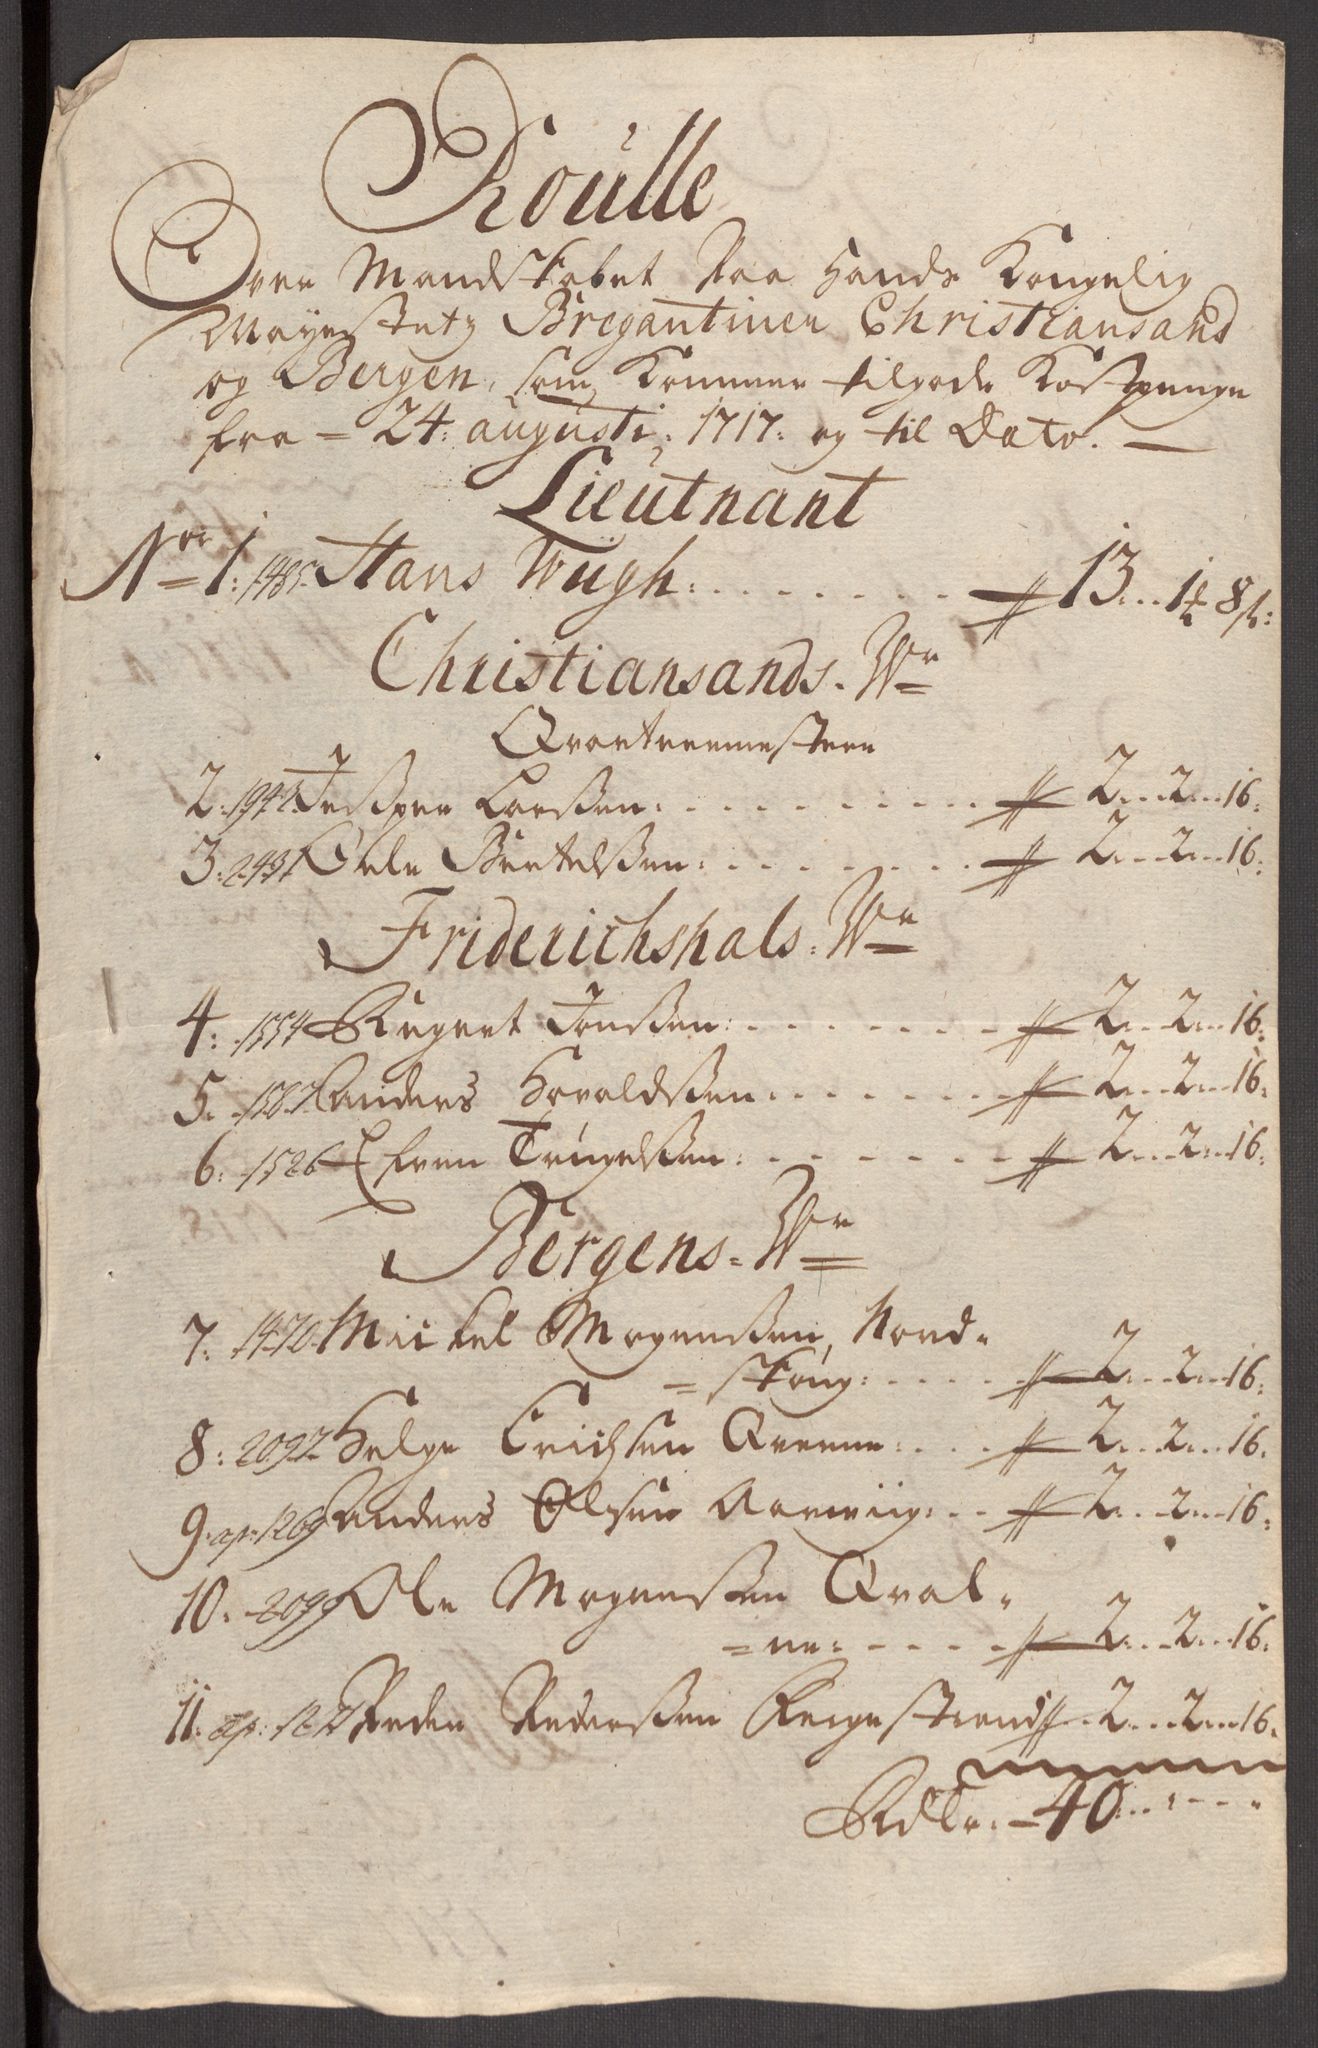 Roulle
Over Mandskabet Paa Hands Kongelig
Mayestetz Bregantinen Christiansand
og Bergen, som Kommer tilgode Kostpenge
fra - 24: augusti: 1717: og til Dato. —
Lieutnant
Nro 1: 1485. Hans Wiigh: . . . . . . . . # 13...1 ℔ 8 ß:
Christiansands. Wr
Qvarteermestere
2: 1942. Jesper Larssen: . . . . . . . . . # 2...2...16:
3: 2431 Oele Bertelssen: . . . . . . . # 2...2...16:
Friderichshals. Wr
4: 1554 Rugert Jonssen: . . . . . . . # 2...2...16:
5. 1567 anders Harvaldssen. . . . . . . # 2...2...16:
6: 1526 Efven Trugelssen: . . . . . . # 2...2...16:
Bergens. Wr
7: 1470. Mickel Mogenssen, Nord-
= skoug: . . . . . # 2...2...16:
8: 2092. Helge Erichsen Qvenne: . . . # 2...2...16.
9. ap: 1269 anders Olsen Aarwiig: . . # 2...2...16:
10: 2099 Ole Mogenssen Qval-
= ne: . . . . . # 2...2...16:
11: ap: Peder Pedersen # 2...2...16:
Rdlr: - 40: . . . . .